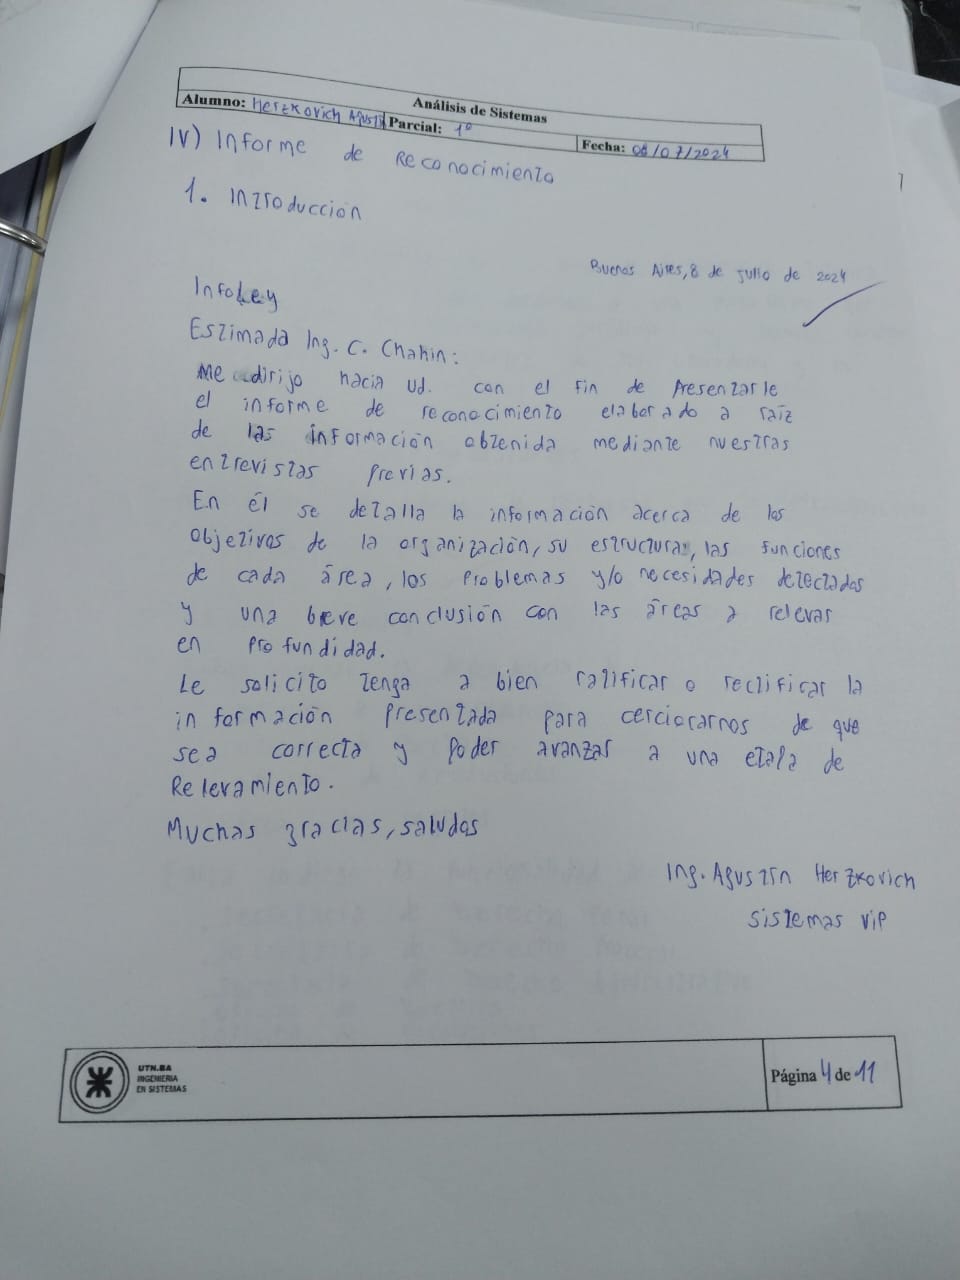 Análisis de Sistemas
Alumno: Herzkovich Agustín Parcial: 1° Fecha: 08/07/2024
IV) Informe de Reconocimiento
1. Introducción
Buenos Aires, 8 de Julio de 2024
Infokey
Estimada Ing. C. Chahin:
Me dirijo hacia Ud. con el fin de presentarle
el informe de reconocimiento elaborado a raíz
de las información obtenida mediante nuestras
entrevistas previas.
En él se detalla la información acerca de los
objetivos de la organización, su estructura, las funciones
de cada área, los problemas y/o necesidades detectados
y una breve conclusión con las áreas a relevar
en profundidad.
Le solicito tenga a bien ratificar o rectificar la
información presentada para cerciorarnos de que
sea correcta y poder avanzar a una etapa de
Relevamiento.
Muchas gracias, saludos
Ing. Agustín Herzkovich
Sistemas VIP
UTN.BA
INGENIERIA
EN SISTEMAS
Página 4 de 11